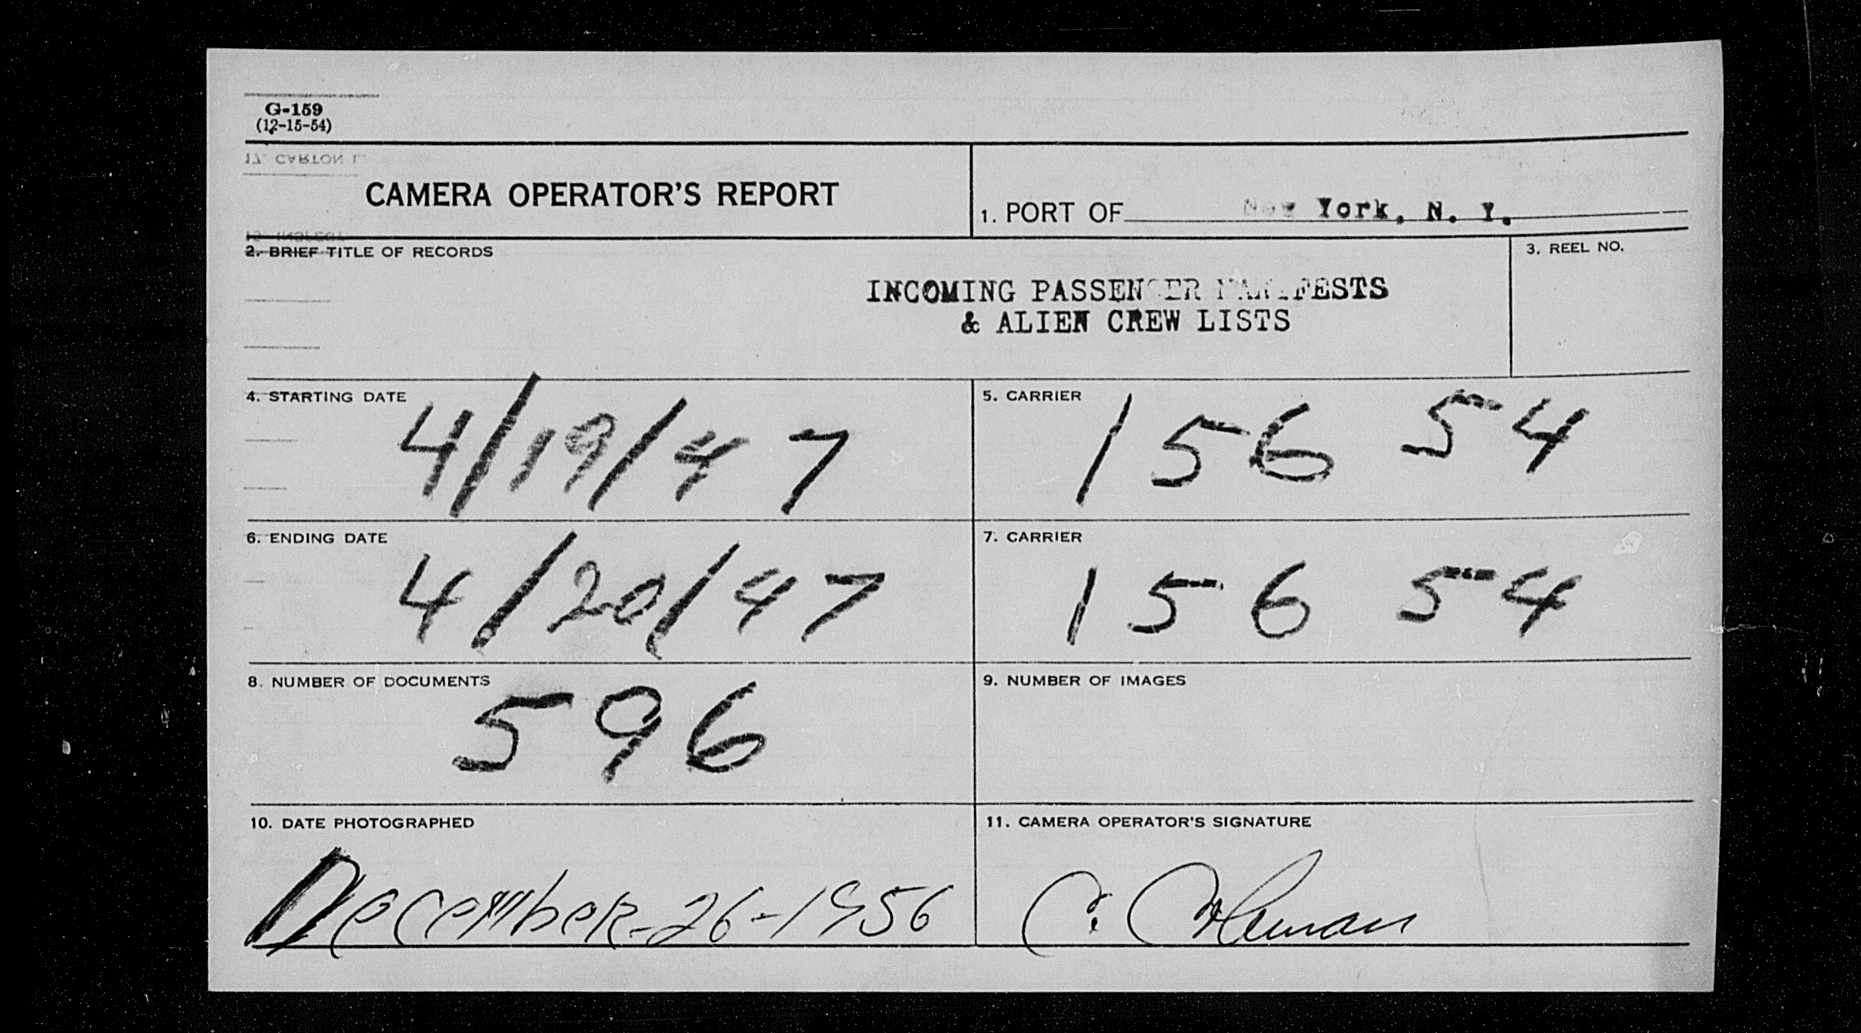 G-159
(12-15-54)
CAMERA OPERATOR'S REPORT
1. PORT OF New York, N. Y.
2. BRIEF TITLE OF RECORDS
INCOMING PASSENGER MANIFESTS
& ALIEN CREW LISTS
3. REEL NO.
4. STARTING DATE
4/19/47
5. CARRIER
156 54
6. ENDING DATE
4/20/47
7. CARRIER
156 54
8. NUMBER OF DOCUMENTS
596
9. NUMBER OF IMAGES
10. DATE PHOTOGRAPHED
December-26-1956
11. CAMERA OPERATOR'S SIGNATURE
C. Coleman